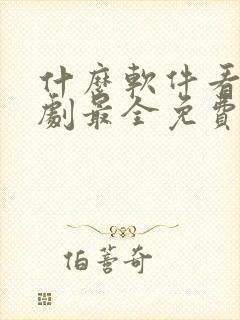 什麼軟件看
劇最全免費
伯蓍奇